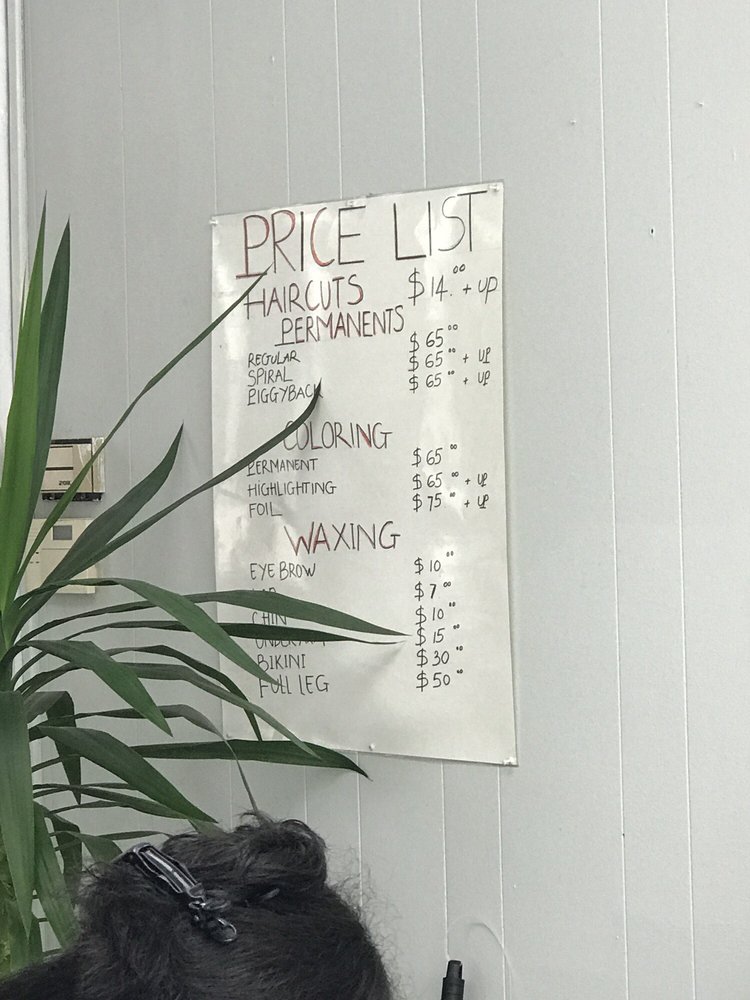 PRICE LIST
HAIRCUTS $14.00 + UP
PERMANENTS
REGULAR $65 00
SPIRAL $65 00 + UP
PIGGYBACK $65 00 + UP
COLORING
PERMANENT $65 00
HIGHLIGHTING $65 00 + UP
FOIL $75 00 + UP
WAXING
EYE BROW $10 00
$7 00
CHIN $10 00
$15 00
BIKINI $30 00
FULL LEG $50 00